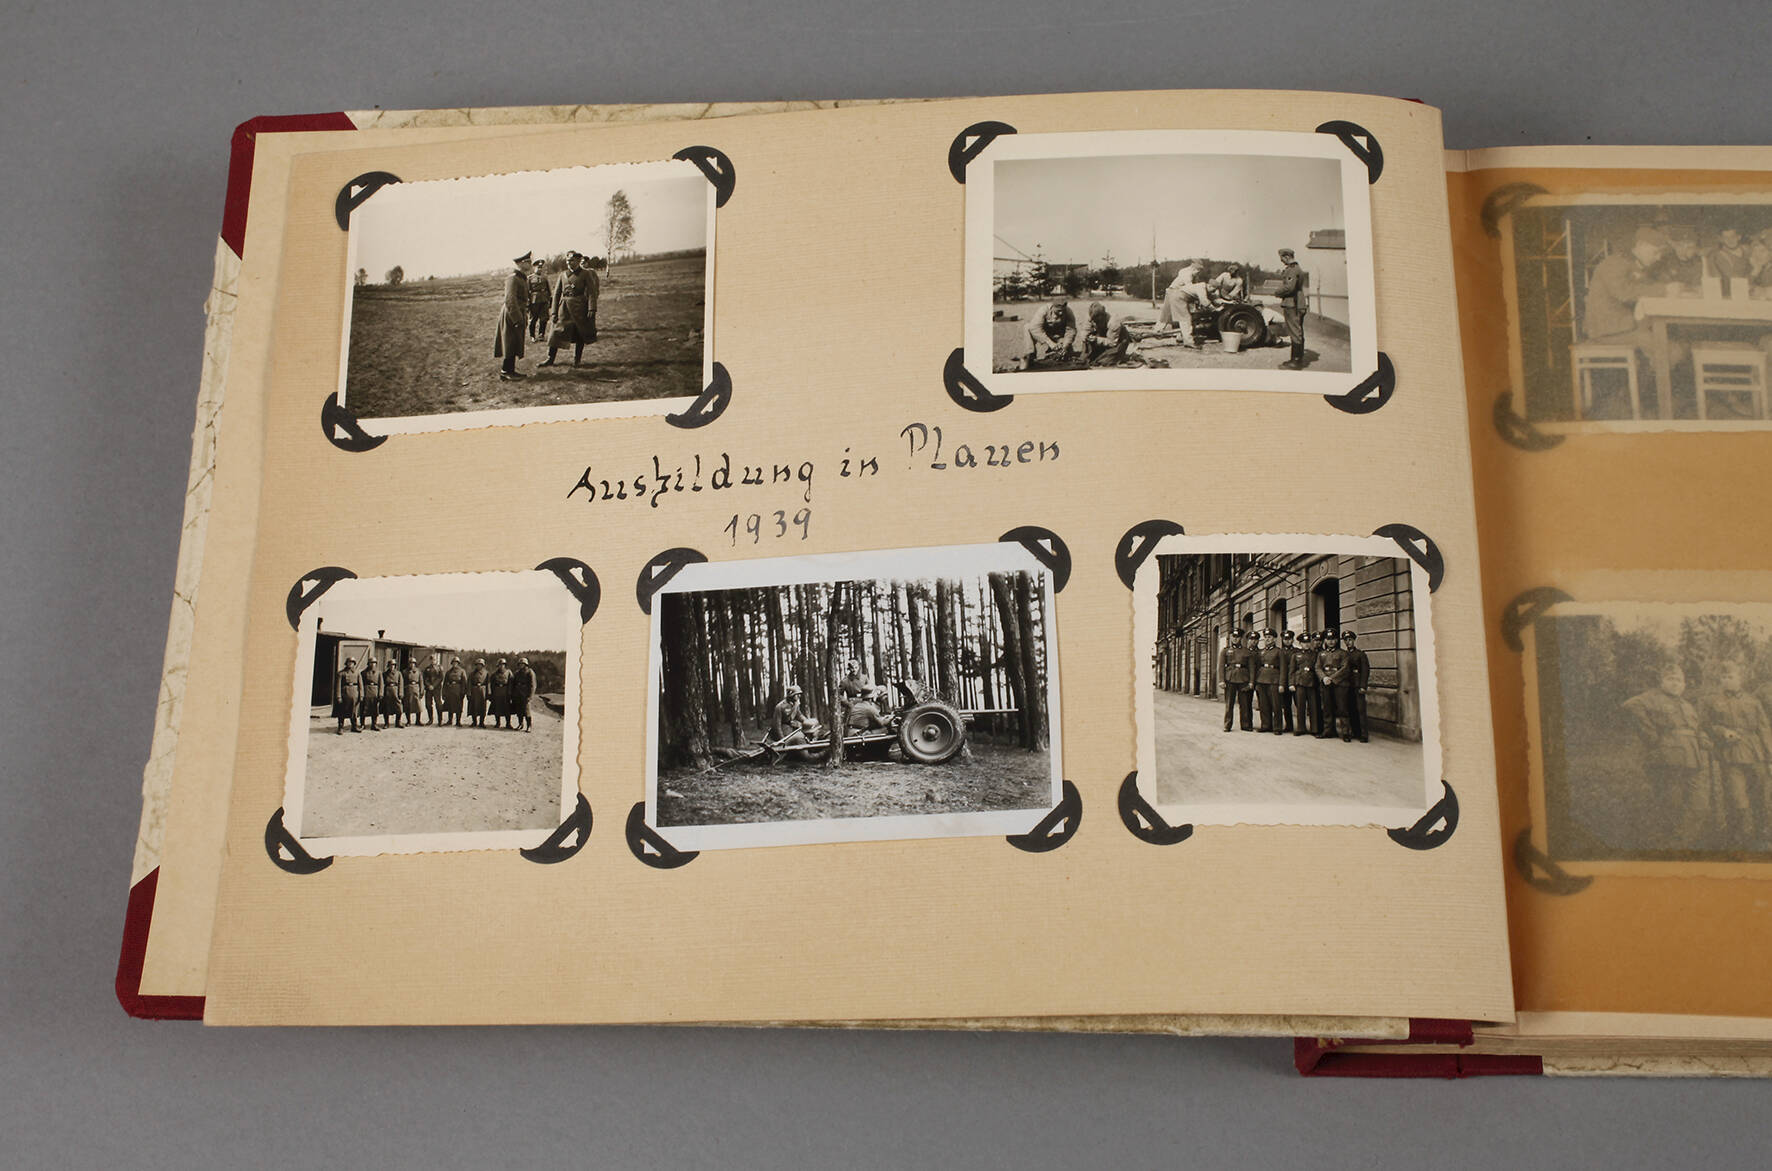 Ausbildung in Plauen
1939